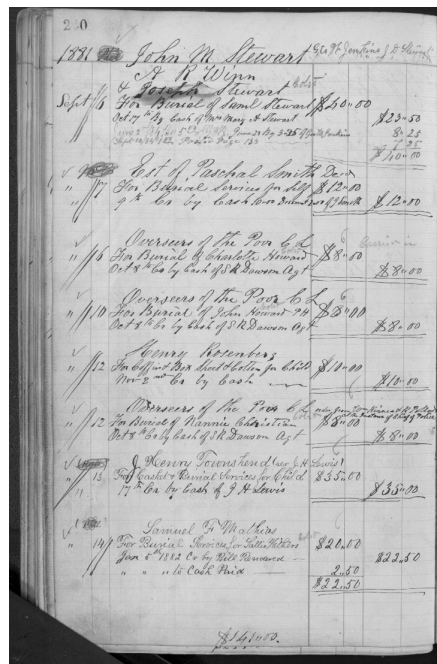 240
1881 John M Stewart Geo W Jenkins J D Stewart
A R Winn
& Joseph Stewart Cold
Sept 6 For Burial of Saml Stewart $40.00
Oct 17th By Cash of Mrs Mary A Stewart $23=50
8=25
7 25
$40=00
Est of Paschal Smith Decd
" 7 For Burial Services for Self $12=00
" 9th Cr by Cash $12=00
Overseers of the Poor C L
" 6 For Burial of Charlotte Howard $8=00
Oct 8th Cr by Cash of S R Dawson Agt $8=00
Overseers of the Poor C L
" 10 For Burial of John Howard $8=00
Oct 8th Cr by Cash of S R Dawson Agt $8=00
Henry Rosenberg
" 12 For Coffin & Box for Child $10=00
Nov 2nd Cr by Cash $10=00
Overseers of the Poor C L
" 12 For Burial of Nannie Christian $8=00
Oct 8th Cr by Cash of S R Dawson Agt $8=00
J Henry Townshend (per J H Lewis)
" 15 For Casket & Burial Services for Child $35=00
" 17th Cr by Cash of J H Lewis $35=00
Samuel F Mathews
" 14 For Burial Services for Sallie $20=50
Jan 5th 1882 Cr by Bill Rendered $22=50
" " " to Cash Paid 2=50
$22=50
$141=00